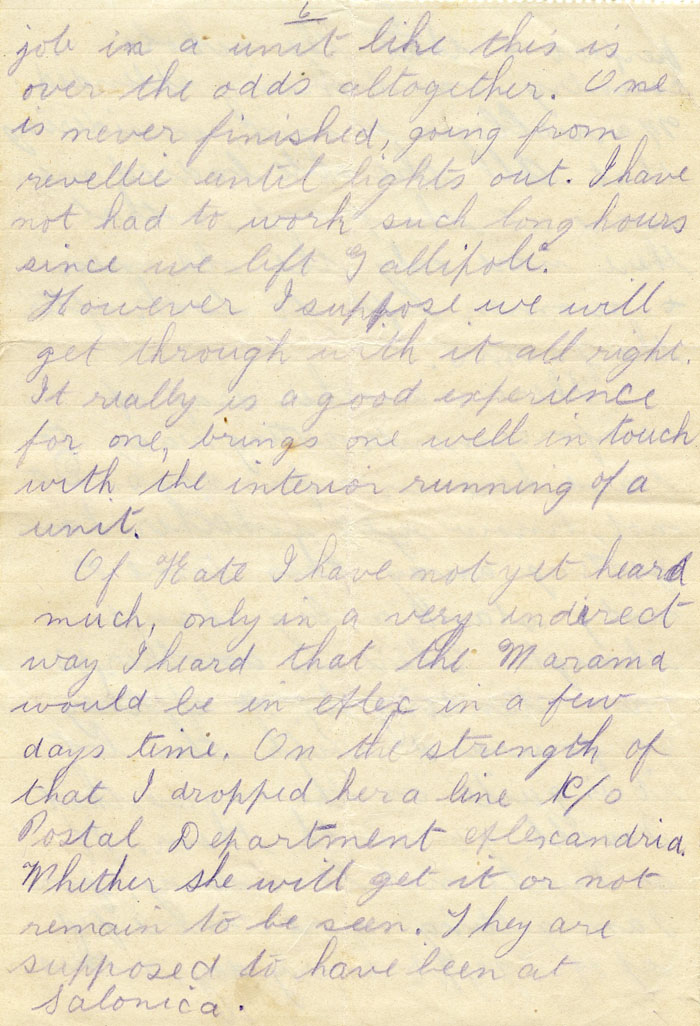 6
job in a unit like this is
over the odds altogether. One
is never finished, going from
revellie until lights out. I have
not had to work such long hours
since we left Gallipoli.
However I suppose we will
get through with it all right.
It really is a good experience
for one, brings one well in touch
with the interior running of a
unit.
Of Kate I have not yet heard
much, only in a very indirect
way I heard that the Marama
would be in Alex in a few
days time. On the strength of
that I dropped her a line c/o
Postal Department Alexandria.
Whether she will get it or not
remain to be seen. They are
supposed to have been at
Salonica.